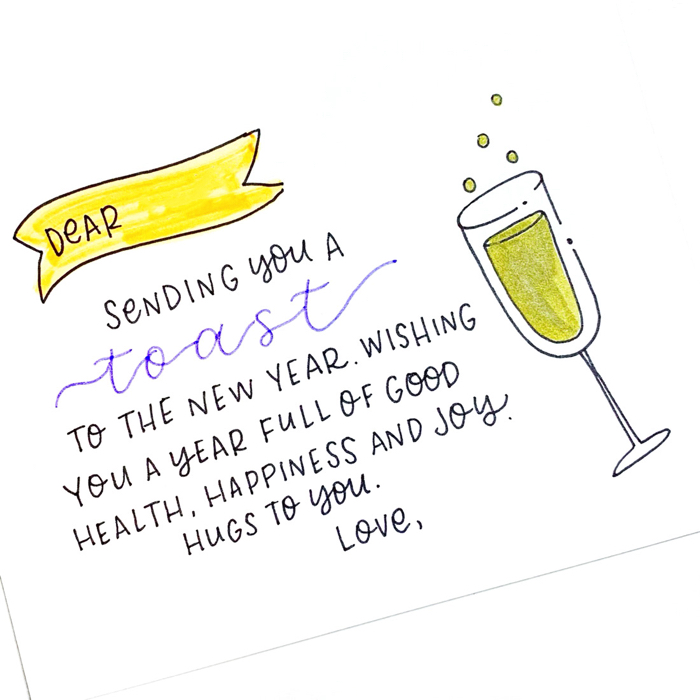 DEAR
SENDING YOU A
toast
TO THE NEW YEAR. WISHING
YOU A YEAR FULL OF GOOD
HEALTH, HAPPINESS AND JOY.
HUGS TO YOU.
LOVE,